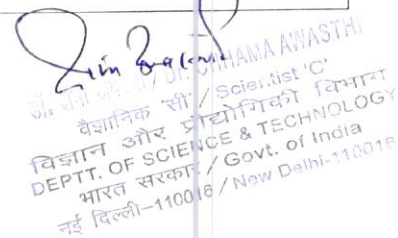 DR. CHHAMA AWASTHI
वैज्ञानिक 'सी' / Scientist 'C'
विज्ञान और प्रौद्योगिकी विभाग
DEPTT. OF SCIENCE & TECHNOLOGY
भारत सरकार / Govt. of India
नई दिल्ली-110016 / New Delhi-110016